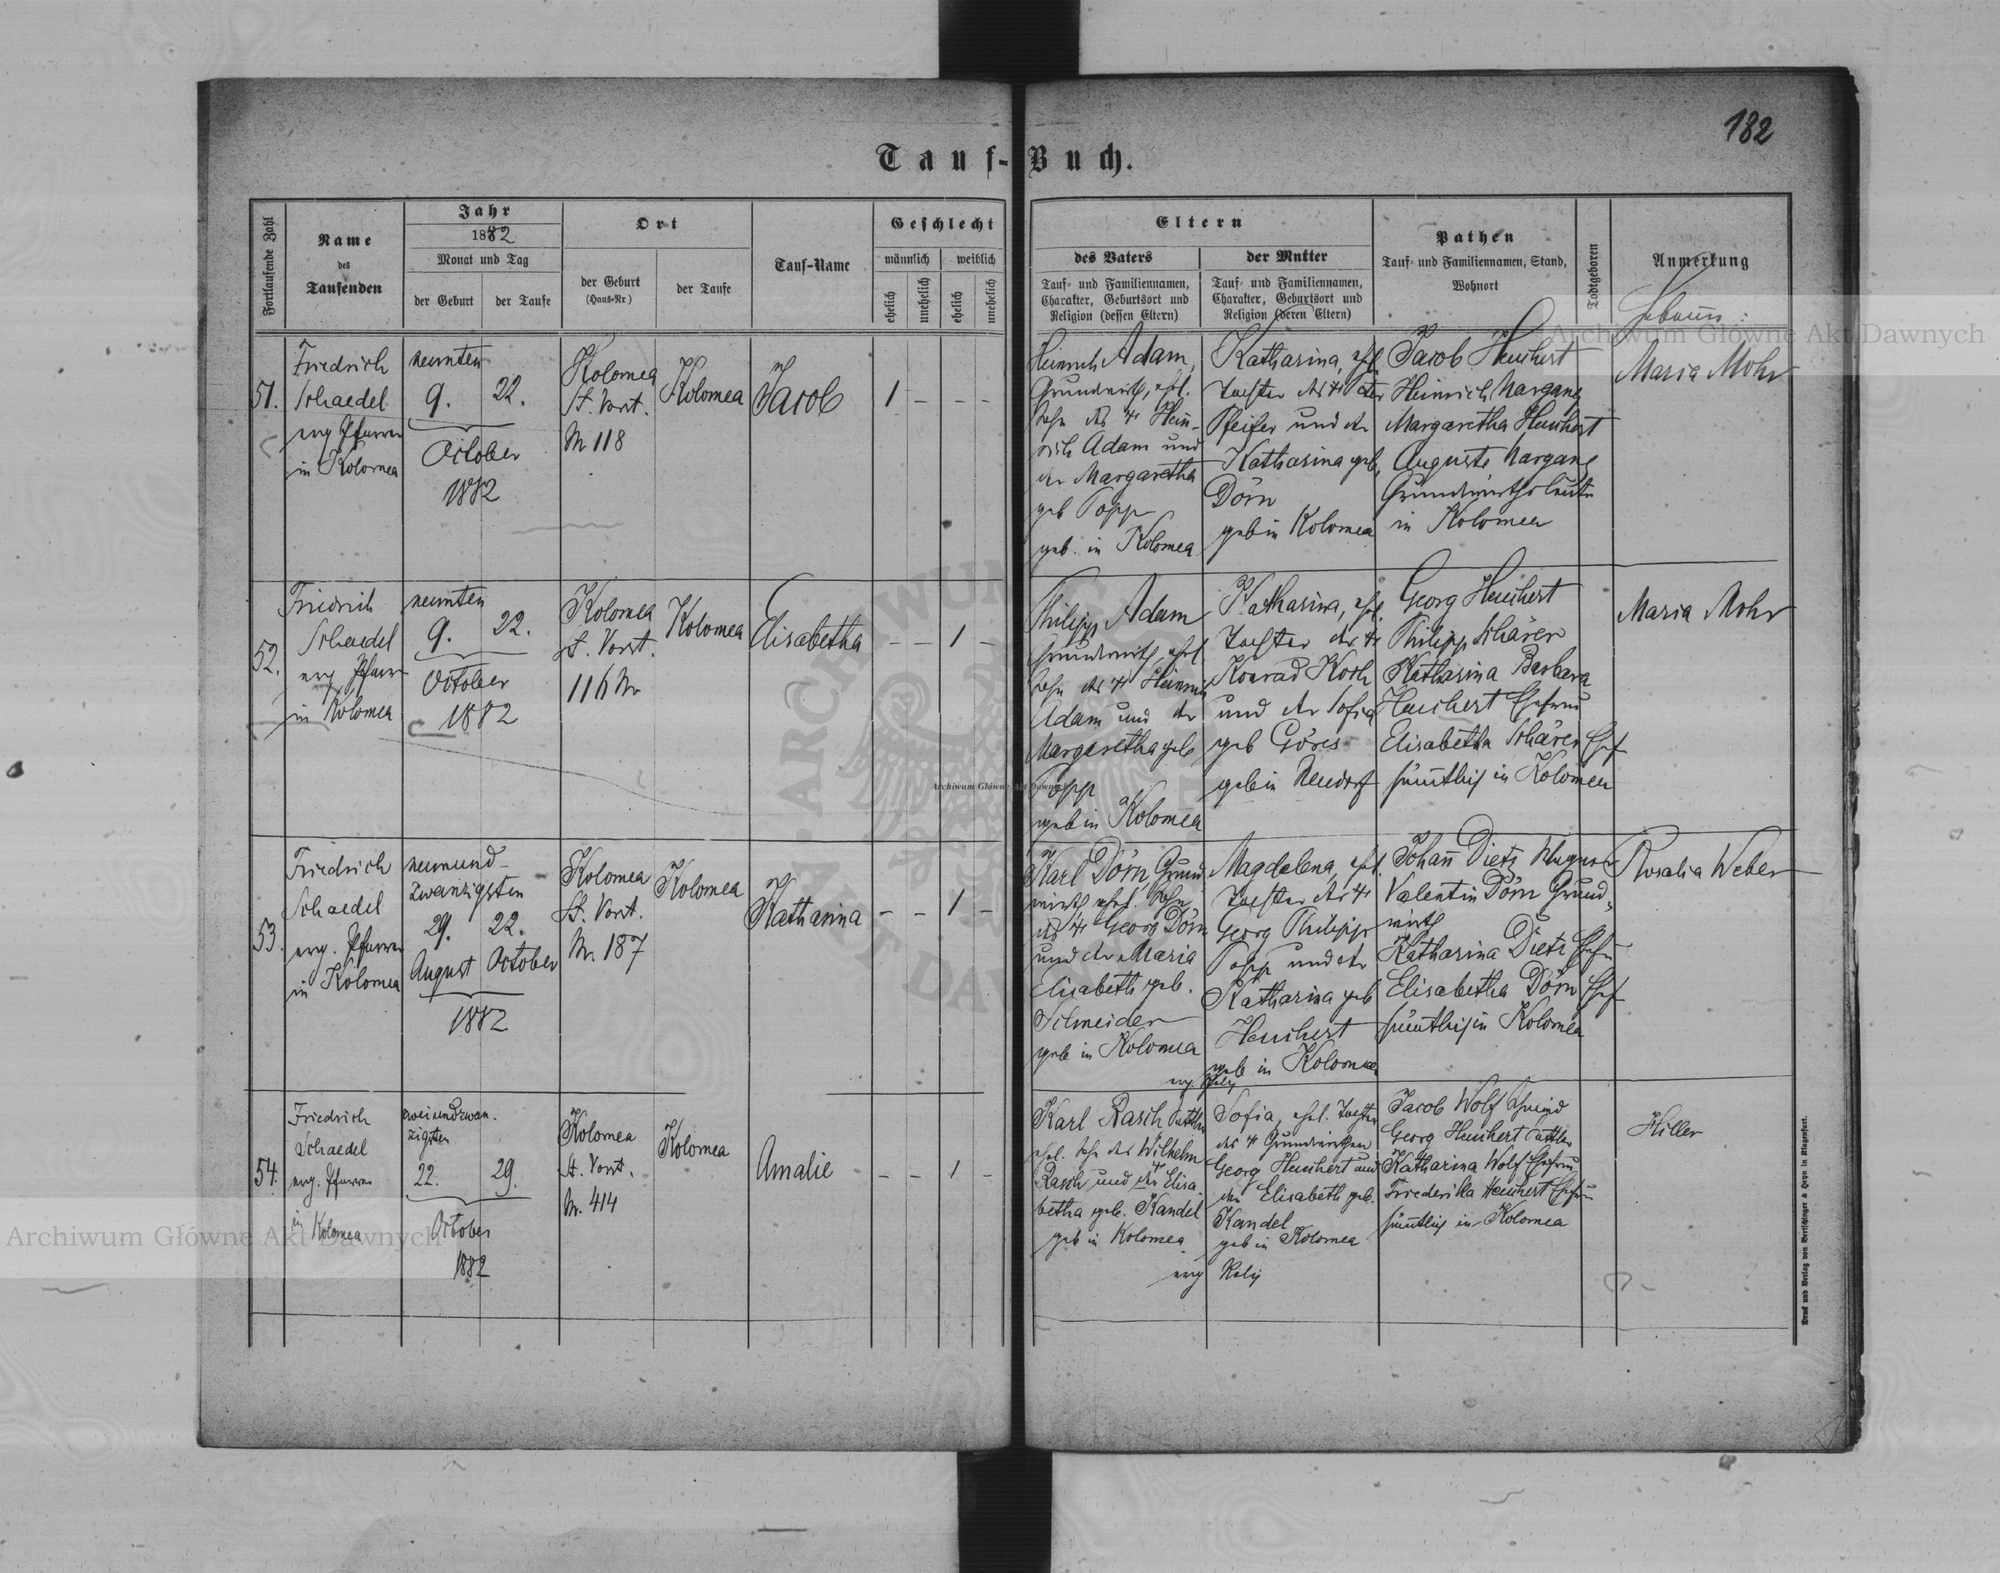 182
Tauf-Buch.
Fortlaufende Zahl
Name
des
Taufenden
Jahr
1882
Monat und Tag
der Geburt
der Taufe
Ort
der Geburt
(Haus-Nr)
der Taufe
Tauf-Name
Geschlecht
männlich
weiblich
ehelich
unehelich
ehelich
unehelich
Eltern
des Vaters
Tauf- und Familiennamen,
Charakter, Geburtsort und
Religion (dessen Eltern)
der Mutter
Tauf- und Familiennamen,
Charakter, Geburtsort und
Religion (deren Eltern)
Pathen
Tauf- und Familiennamen, Stand,
Wohnort
Todtgeboren
Anmerkung
51.
Friedrich
Schaedel
evg Pfarrer
in Kolomea
neunten
9.
22.
October
1882
Kolomea
St. Vorst.
Nr 118
Kolomea
Jacob
1 – – –
Heinrich Adam,
Grundwirth, ehl.
Sohn des + Hein-
rich Adam und
der Margaretha
geb Popp
geb. in Kolomea
Katharina, ehl.
Tochter des + Peter
Pfeifer und der
Katharina geb.
Dörn
geb in Kolomea
Jacob Heuchert
Heinrich Margang
Margaretha Heuchert
Auguste Margang
Grundwirthsleute
in Kolomea
Maria Mohr
52.
Friedrich
Schaedel
evg Pfarrer
in Kolomea
neunten
9.
22.
October
1882
Kolomea
St. Vorst.
116 Nr
Kolomea
Elisabetha
– – 1 –
Philipp Adam
Grundwirth, ehl.
Sohn des + Heinrich
Adam und der
Margaretha geb
Popp
geb in Kolomea
Katharina, ehl.
Tochter des +
Konrad Koch
und der Sofia
geb Göres
geb in Neudorf
Georg Heuchert
Philipp Schärer
Katharina Barbara
Heuchert Ehefrau
Elisabetha Schärer Ehef
sämtlich in Kolomea
Maria Mohr
53.
Friedrich
Schaedel
evg. Pfarrer
in Kolomea
neunund-
zwanzigsten
29.
22.
August
October
1882
Kolomea
St. Vorst.
Nr. 187
Kolomea
Katharina
– – 1 –
Karl Dörn, Grund
wirth ehel. Sohn
des + Georg Dörn
und der Maria
Elisabeth geb.
Schneider
geb in Kolomea
Magdalena, ehl.
Tochter des +
Georg Philipp
Popp und der
Katharina geb
Heuchert
geb in Kolomea
evg. Relig
Johann Dietz Wagner
Valentin Dörn Grund-
wirth
Katharina Dietz Ehefr
Elisabetha Dörn Ehef
sämtlich in Kolomea
Rosalia Weber
54.
Friedrich
Schaedel
evg. Pfarrer
in Kolomea
zweiundzwan-
zigsten
22.
29.
October
1882
Kolomea
St. Vorst.
Nr. 414
Kolomea
Amalie
– – 1 –
Karl Rasch Sattler
ehel. Sohn des Wilhelm
Rasch und der + Elisa-
betha geb. Kandel
geb in Kolomea
evg Relig
Sofia, ehel. Tochter
des + Grundwirthen
Georg Heuchert und
der Elisabeth geb.
Kandel
geb in Kolomea
Jacob Wolf Schmied
Georg Heuchert Sattler
Katharina Wolf Ehefrau
Friederika Heuchert Ehefrau
sämtlich in Kolomea
Hiller
Druck und Verlag von Bertschinger & Heyn in Klagenfurt.
Archiwum Główne Akt Dawnych
Archiwum Główne Akt Dawnych
Archiwum Główne Akt Dawnych